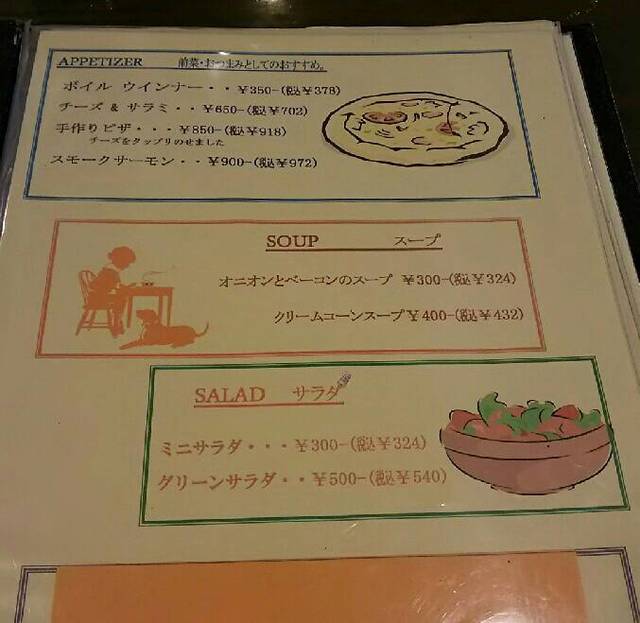 APPETIZER 前菜・おつまみとしてのおすすめ。
ボイル ウインナー・・¥350-(税込¥378)
チーズ & サラミ・・¥650-(税込¥702)
手作りピザ・・・¥850-(税込¥918)
チーズをタップリのせました
スモークサーモン・・¥900-(税込¥972)
SOUP スープ
オニオンとベーコンのスープ ¥300-(税込¥324)
クリームコーンスープ¥400-(税込¥432)
SALAD サラダ
ミニサラダ・・・¥300-(税込¥324)
グリーンサラダ・・¥500-(税込¥540)